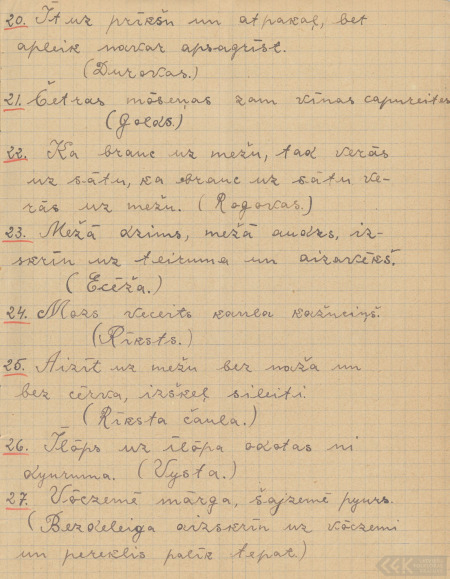 20. Īt uz prīkšu un atpakaļ, bet
apleik navar apsagrīst.
(Durovas.)
21. Četras mōseņas zam vīnas capureites
(Golds)
22. Ka brauc uz mežu, tad verās
uz sātu, ka brauc uz sātu ve-
rās uz mežu. (Rogovas.)
23. Mežā dzims, mežā audzs, iz-
skrīn uz teiruma un aizavēkš.
(Ecēža.)
24. Mozs veceits kaula kažuciņš.
(Rīksts.)
25. Aizīt uz mežu bez naža un
bez cērva, izšķeļ sileiti.
(Rīksta čaula.)
26. Īlōps uz īlōpa adatas ni
dyuruma. (Vysta.)
27. Vōczemē mārga, šajzemē pyurs.
(Bezdeleiga aizskrīn uz vōczemi
un pereklis palīk tepat.)